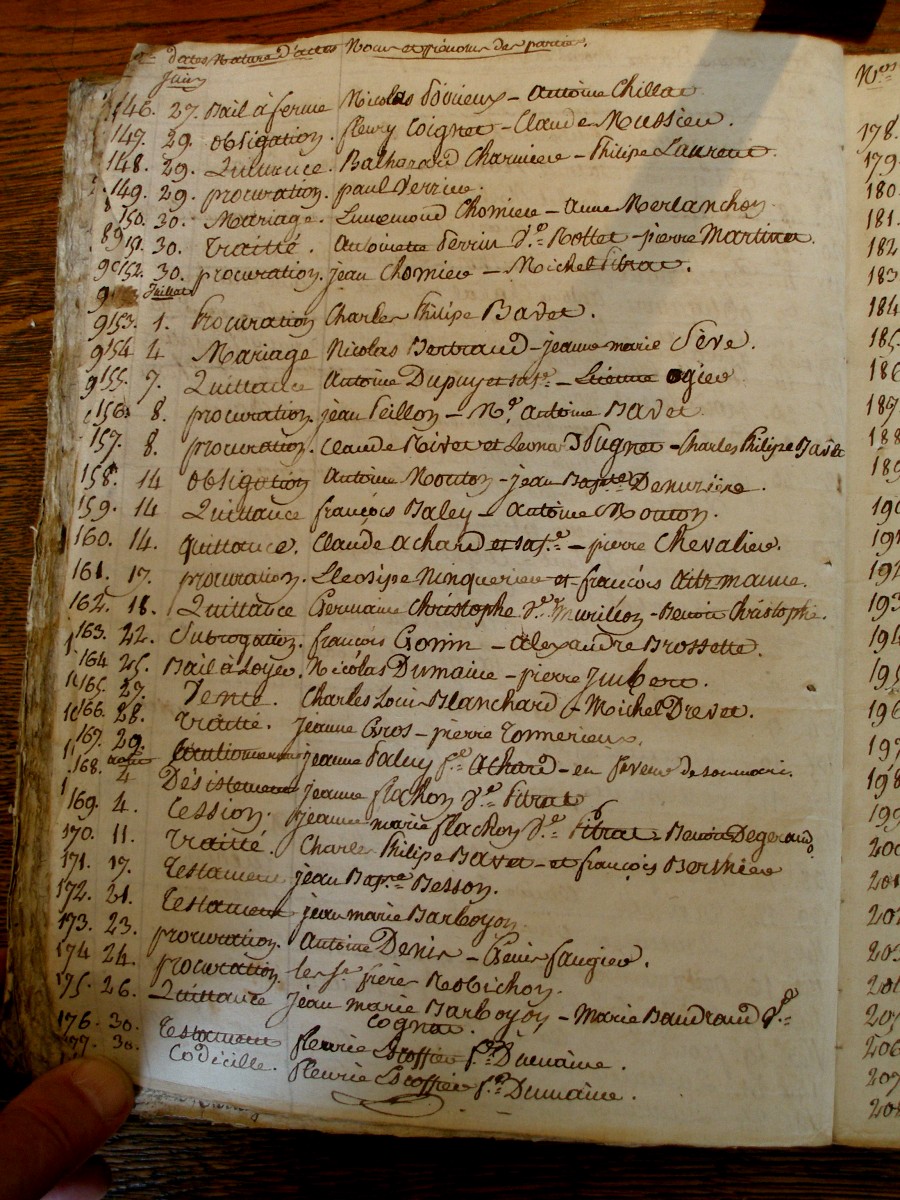 dates Nature d'actes Noms et prénoms des parties.
Juin
146. 27. Bail à ferme Nicolas - Antoine Chillat
147. 29. obligation. fleury Coignet - Claude Mussieu.
148. 29. Quittance. Balthazard Charmiere - Philipe Laurent.
149. 29. procuration. paul Verrier.
150. 30. Mariage. Chomier - Anne Merlanchon
151. 30. traitté. Antoinette Perrin d.e Rottet - pierre Martinet.
152. 30. procuration. jean Chomier - Michel Pitrat.
Juillet
153. 1. Procuration Charles Philipe Bavet.
154 4 Mariage Nicolas Bertrand - jeanne marie Sève.
155. 7. Quittance Antoine Dupuy et sa f.e - Etienne ogier
156. 8. procuration. jean Peillon - M.e antoine Bavet.
157. 8. procuration. Claude Rivet et Leonard - Charles Philipe Bavet
158. 14 obligation Antoine Mouton - jean Bap.te Denuzière.
159. 14 Quittance françois Baley - Antoine Mouton.
160. 14. quittance. Claude achard et sa f.e - pierre Chevalier.
161. 17. procuration. et françois
162. 18. Quittance Germaine Christophe d.e - Benoit Christophe.
163. 22. Subrogation. françois Gonin - Alexandre Brossette.
164 25. Bail à Loyer. Nicolas Dumaine - pierre Jmbert.
165. 27. Vente. Charles Louis Blanchard - Michel Drevet.
166. 28. traitté. Jeanne Gros - pierre
167. 29. jeanne f.e Achard - en faveur de son mari.
aoust
168. 4 Désistement jeanne flachon d.e Pitrat
169. 4. Cession. jeanne marie flachon d.e Pitrat - Benoit Degeraud
170. 11. traitté. Charles Philipe Bavet - et françois Berthier
171. 17. testament jean Bap.te Besson.
172. 21. testament jean marie Barboyon
173. 23. procuration. Antoine Denis - faugier.
174 24. procuration. les s.rs frères Robichon.
175. 26. Quittance jean marie Barboyon - Marie Baudrand d.e
Cognet.
176. 30. testament fleurie Escoffier f.e Dumaine.
177. 30. Codicille. fleurie Escoffier f.e Dumaine.
N.os
178.
179.
180.
181.
182
183
184
185.
186
187
188
189
190
191
192
193
194
195
196
197
198
199
200
201
202
203
204
205
206
207
208